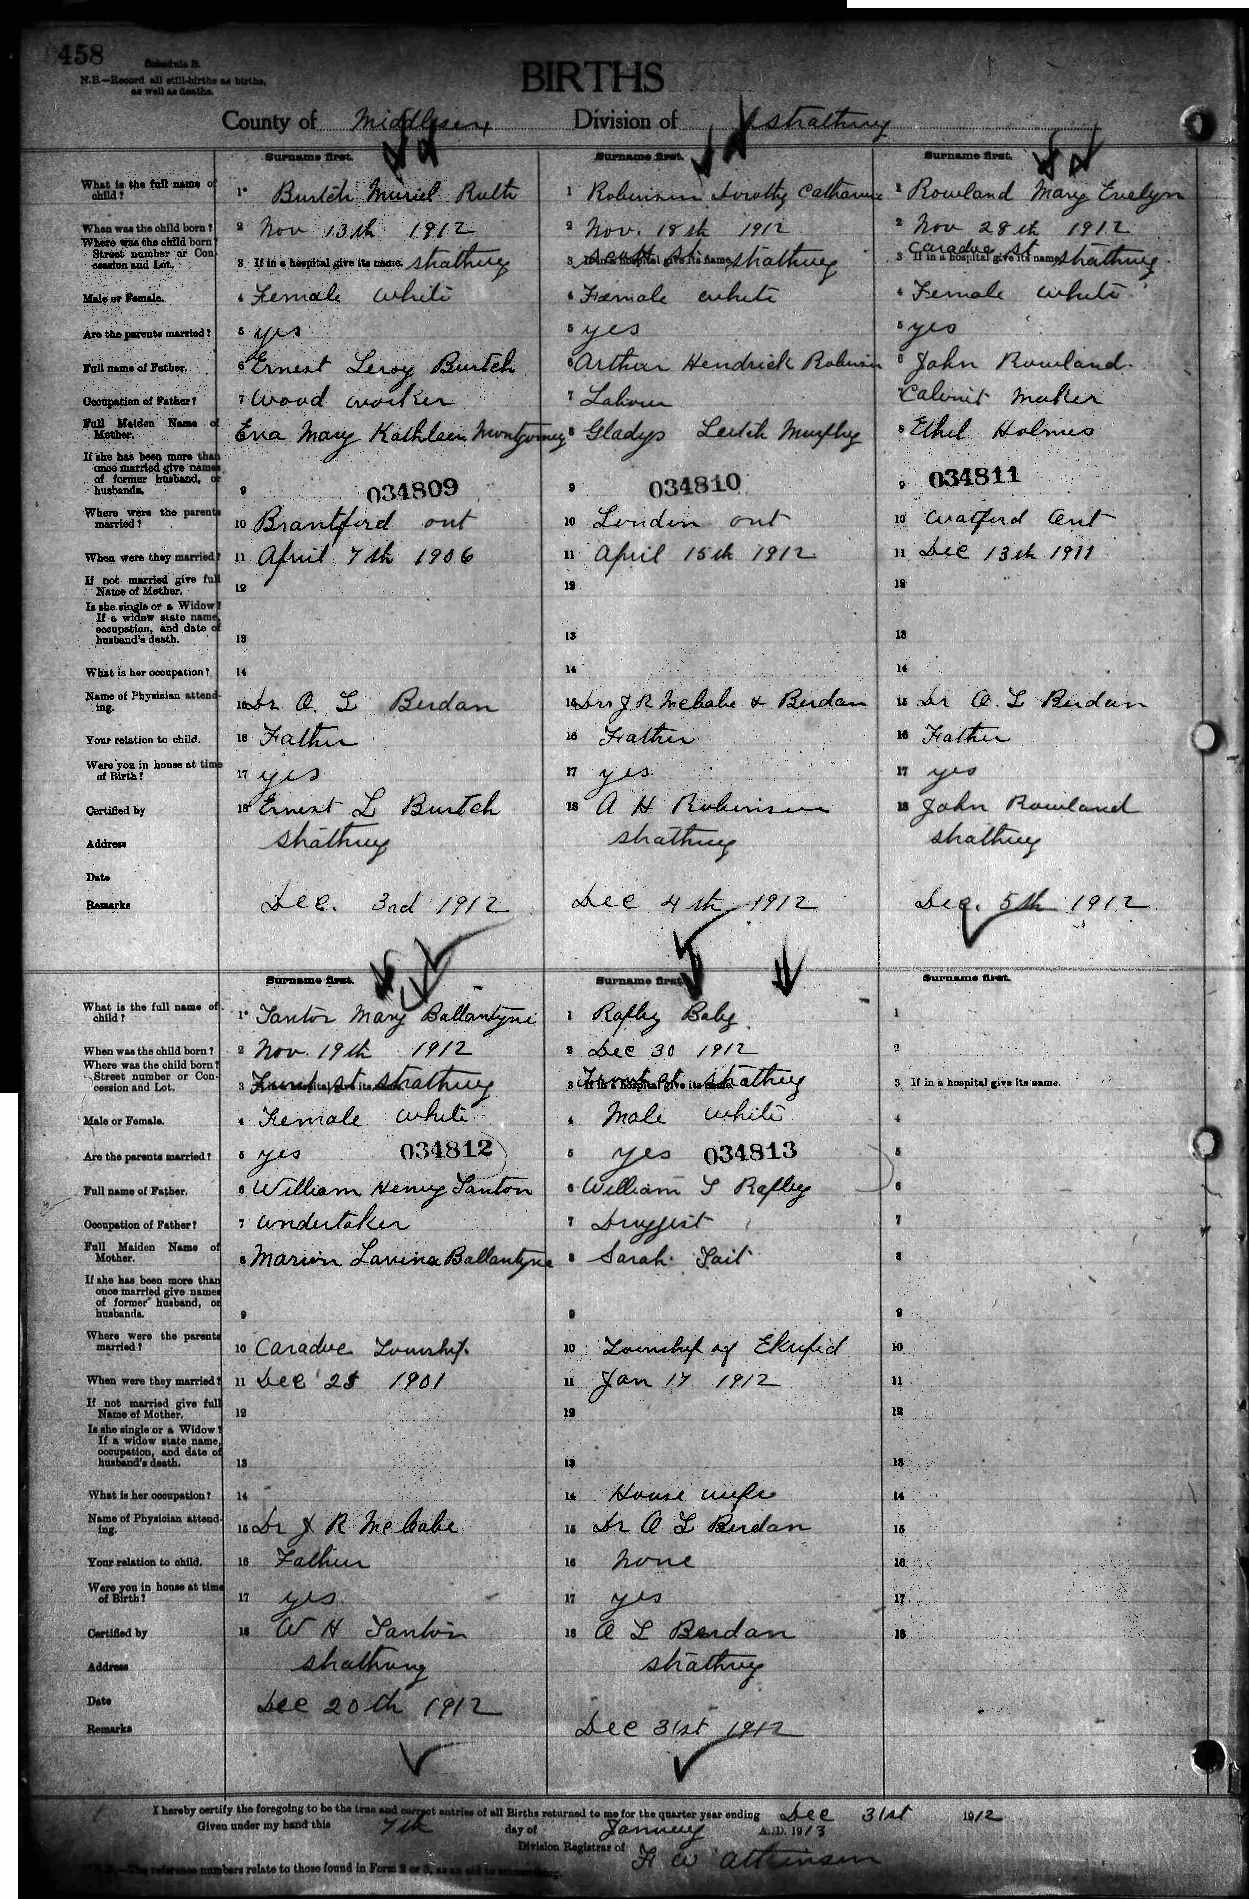 458
Schedule B.
N.B.—Record all still-births as births,
as well as deaths.
BIRTHS
County of Middlesex Division of Strathroy
Surname first. Surname first. Surname first.
What is the full name of child? 1 Burtch Muriel Ruth 1 Robinson Dorothy Catharine 1 Rowland Mary Evelyn
When was the child born? 2 Nov 13th 1912 2 Nov. 18th 1912 2 Nov 28th 1912
Where was the child born? Street number or Concession and Lot. 3 If in a hospital give its name. Strathroy 3 If in a hospital give its name. St Strathroy 3 If in a hospital give its name. Caradoc St Strathroy
Male or Female. 4 Female white 4 Female white 4 Female white
Are the parents married? 5 yes 5 yes 5 yes
Full name of Father. 6 Ernest Leroy Burtch 6 Arthur Hendrick Robinson 6 John Rowland
Occupation of Father? 7 Wood worker 7 Labour 7 Cabinet Maker
Full Maiden Name of Mother. Eva Mary Kathleen Montgomery 8 Gladys Leitch Murphy 8 Ethel Holmes
If she has been more than once married give names of former husband, or husbands. 9 034809 9 034810 9 034811
Where were the parents married? 10 Brantford ont 10 London ont 10 Watford Ont
When were they married? 11 April 7th 1906 11 April 15th 1912 11 Dec 13th 1911
If not married give full Name of Mother. 12 12 12
Is she single or a Widow? If a widow state name, occupation, and date of husband's death. 13 13 13
What is her occupation? 14 14 14
Name of Physician attending. 15 Dr O. L Berdan 15 Drs J R McCabe & Berdan 15 Dr O. L Berdan
Your relation to child. 16 Father 16 Father 16 Father
Were you in house at time of Birth? 17 yes 17 yes 17 yes
Certified by 18 Ernest L Burtch 18 A H Robinson 18 John Rowland
Address Strathroy Strathroy Strathroy
Date
Remarks Dec. 3rd 1912 Dec 4th 1912 Dec. 5th 1912
Surname first. Surname first. Surname first.
What is the full name of child? 1 Santon Mary Ballantyne 1 Rapley Baby 1
When was the child born? 2 Nov. 19th 1912 2 Dec 30 1912 2
Where was the child born? Street number or Concession and Lot. 3 Front st Strathroy 3 If in a hospital give its name. Front st Strathroy 3 If in a hospital give its name.
Male or Female. 4 Female white 4 Male white 4
Are the parents married? 5 yes 034812 5 yes 034813 5
Full name of Father. 6 William Henry Santon 6 William S Rapley 6
Occupation of Father? 7 Undertaker 7 Druggist 7
Full Maiden Name of Mother. 8 Marion Lavina Ballantyne 8 Sarah Tait 8
If she has been more than once married give names of former husband, or husbands. 9 9 9
Where were the parents married? 10 Caradoc Township 10 Township of Ekfrid 10
When were they married? 11 Dec 25 1901 11 Jan 17 1912 11
If not married give full Name of Mother. 12 12 12
Is she single or a Widow? If a widow state name, occupation, and date of husband's death. 13 13 13
What is her occupation? 14 14 House wife 14
Name of Physician attending. 15 Dr J R McCabe 15 Dr O L Berdan 15
Your relation to child. 16 Father 16 None 16
Were you in house at time of Birth? 17 yes 17 yes 17
Certified by 18 W H Santon 18 O L Berdan 18
Address Strathroy Strathroy
Date Dec 20th 1912
Remarks Dec 31st 1912
I hereby certify the foregoing to be the true and correct entries of all Births returned to me for the quarter year ending Dec 31st 1912
Given under my hand this 7th day of January A.D. 1913
Division Registrar of F W Atkinson
N.B.—The reference numbers relate to those found in Form 2 or 3, as an aid to